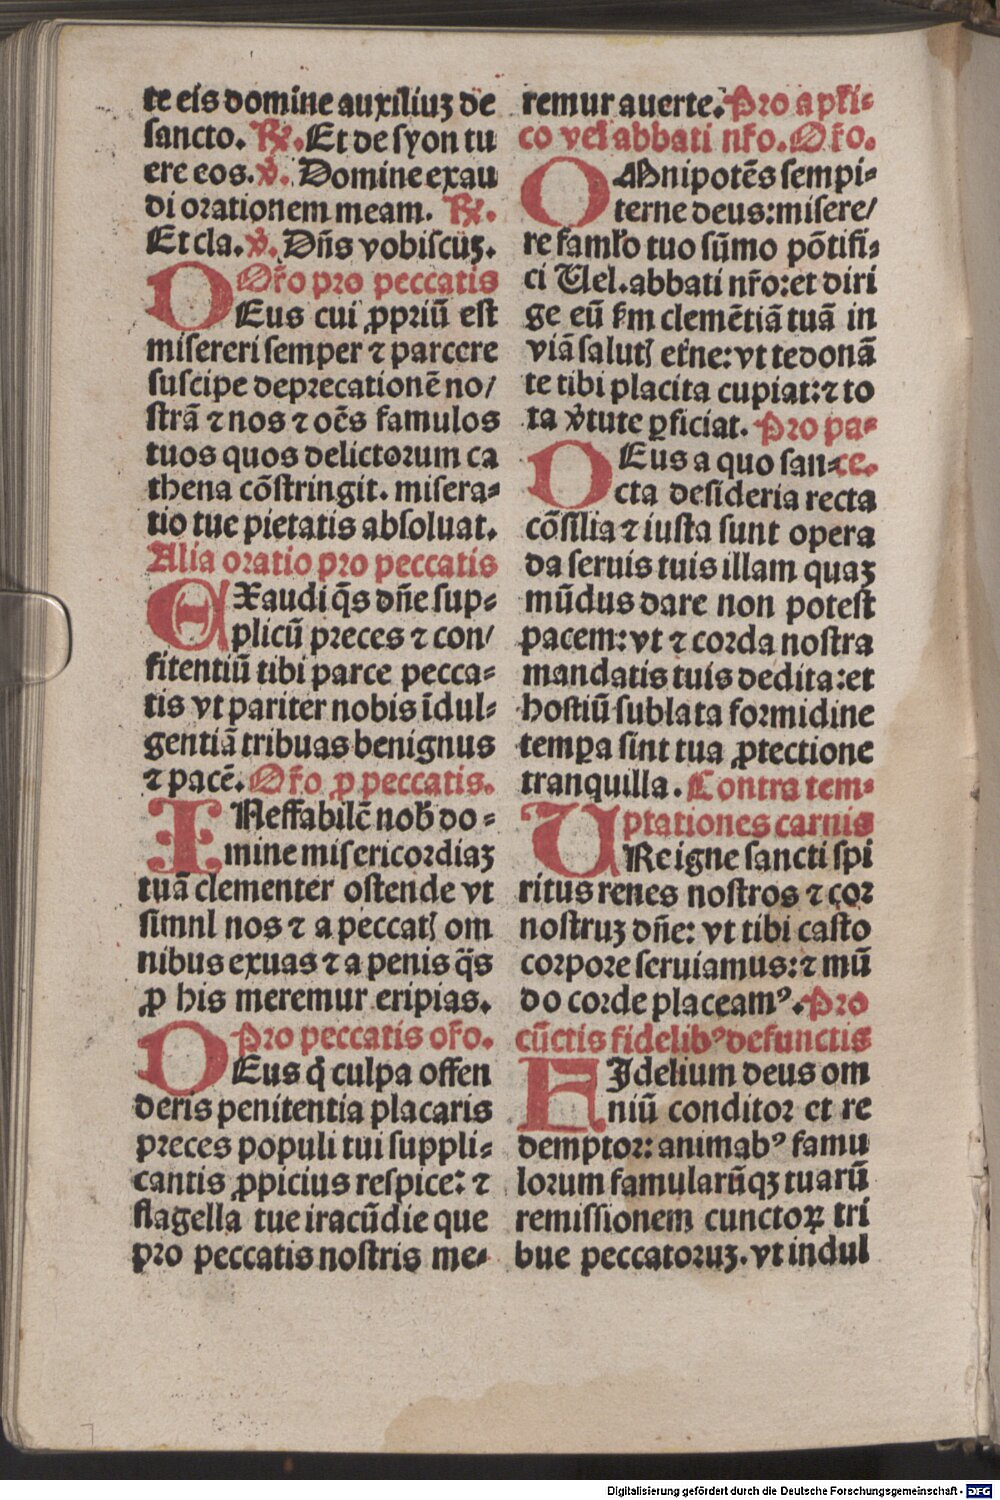 te eis domine auxiliuʒ de
sancto. ℟. Et de syon tu
ere eos. ℣. Domine exau
di orationem meam. ℟.
Et cla. ℣. Dñs vobiscūʒ.
Oŕo pro peccatis
DEus cui ꝓpriū est
misereri semper ⁊ parcere
suscipe deprecationē no/
strā ⁊ nos ⁊ oēs famulos
tuos quos delictorum ca
thena cōstringit. misera⸗
tio tue pietatis absoluat.
Alia oratio pro peccatis
EXaudi q̄s dñe sup⸗
plicū preces ⁊ con/
fitentiū tibi parce pecca⸗
tis vt pariter nobis īdul⸗
gentiā tribuas benignus
⁊ pacē. Oŕo ꝓ peccatis.
INeffabilē nob̄ do⸗
mine misericordiaʒ
tuā clementer ostende vt
simnl nos ⁊ a peccatꝭ om
nibus exuas ⁊ a penis q̄s
ꝓ his meremur eripias.
Pro peccatis oŕo.
DEus q̇ culpa offen
deris penitentia placaris
preces populi tui suppli⸗
cantis ꝓpicius respice: ⁊
flagella tue iracūdie que
pro peccatis nostris me⸗
remur auerte. Pro apłi⸗
co vel abbati nŕo. Oŕo.
OMnipotēs sempi⸗
terne deus: misere/
re famło tuo sūmo pōtifi⸗
ci Uel. abbati nŕo: et diri
ge eū ẜm clemētiā tuā in
viā salutꝭ et̾ne: vt te donā
te tibi placita cupiat: ⁊ to
ta v̾tute ꝑficiat. Pro pa⸗
DEus a quo san⸗ce.
cta desideria recta
cōsilia ⁊ iusta sunt opera
da seruis tuis illam quaʒ
mūdus dare non potest
pacem: vt ⁊ corda nostra
mandatis tuis dedita: et
hostiū sublata formidine
temꝑa sint tua ꝓtectione
tranquilla. Contra tem⸗
ptationes carnis
URe igne sancti spi
ritus renes nostros ⁊ cor
nostruʒ dñe: vt tibi casto
corpore seruiamus: ⁊ mū
do corde placeamꝰ. Pro
cūctis fidelibꝰ defunctis
FIdelium deus om
niū conditor et re
demptor: animabꝰ famu
lorum famularūqʒ tuarū
remissionem cunctoꝝ tri
bue peccatoruʒ. vt indul
Digitalisierung gefördert durch die Deutsche Forschungsgemeinschaft - DFG